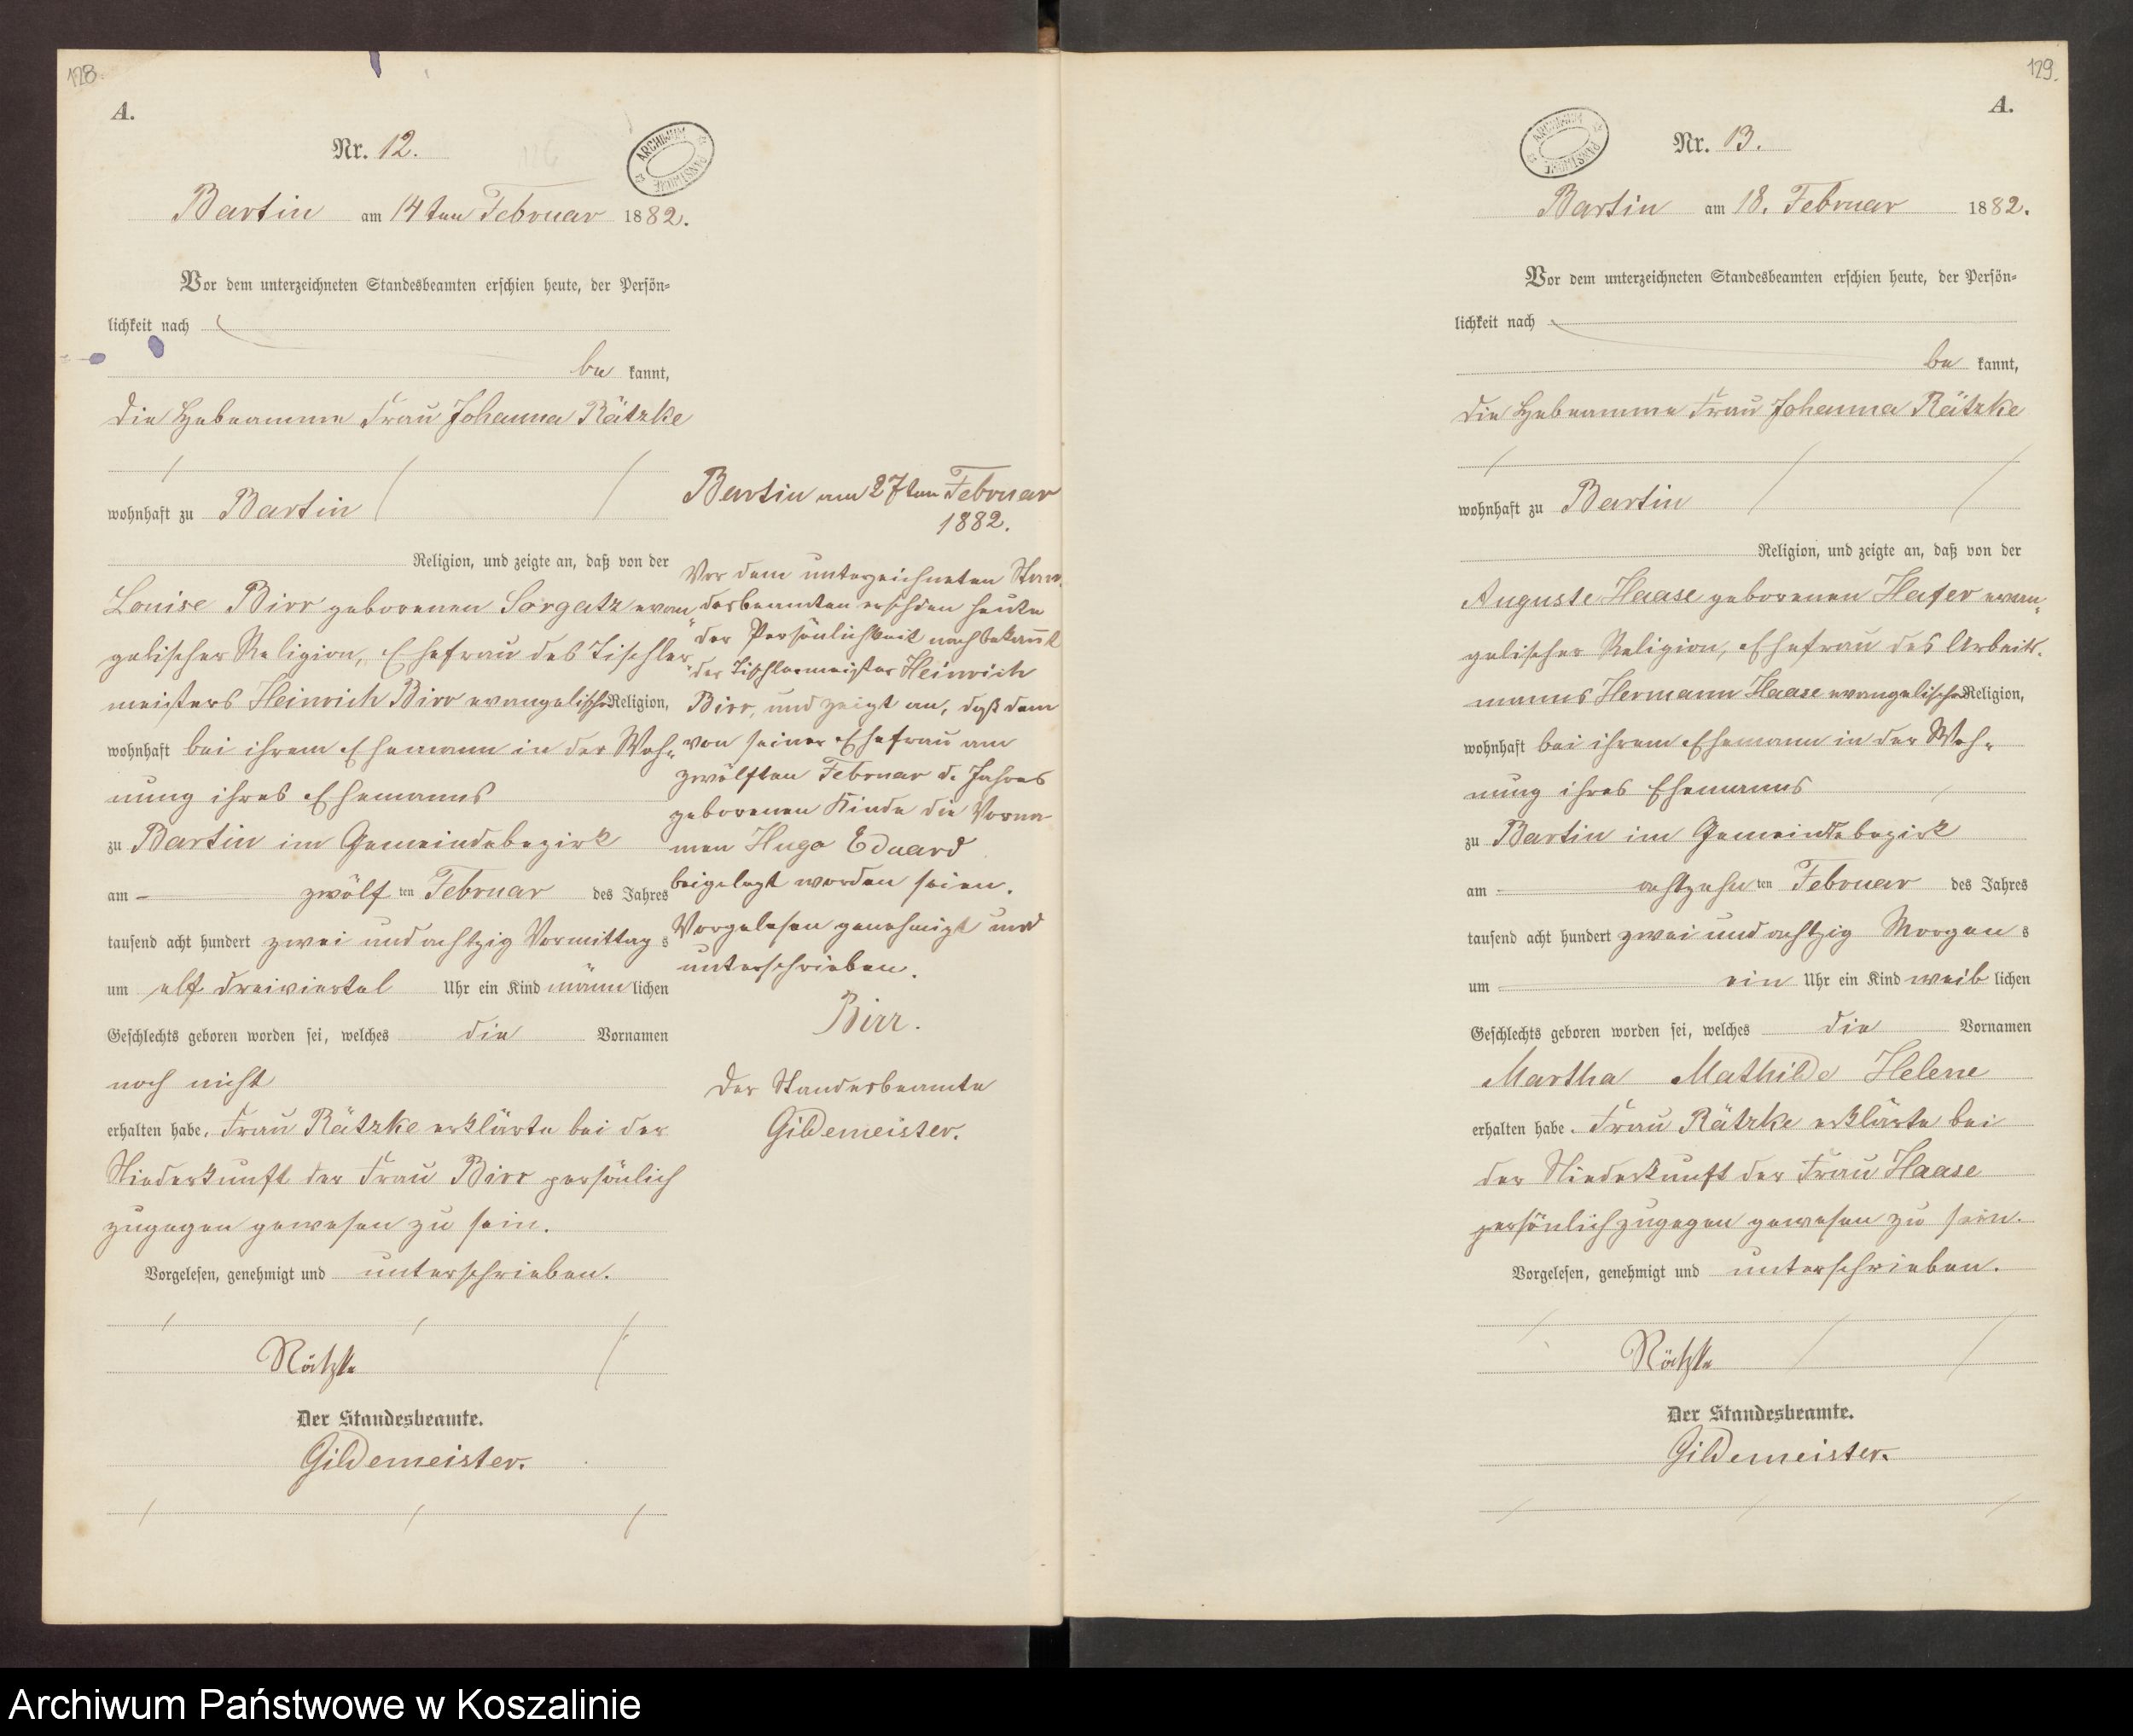 128.
A.
Nr. 12.
ARCHIWUM PAŃSTWOWE
Bartin am 14ten Februar 1882.
Vor dem unterzeichneten Standesbeamten erschien heute, der Persön-
lichkeit nach
be kannt,
die Hebeamme Frau Johanna Rätzke
wohnhaft zu Bartin
Religion, und zeigte an, daß von der
Louise Birr geborenen Sorgatz evan„
gelischer Religion, Ehefrau des Tischler„
meisters Heinrich Birr evangelischer Religion,
wohnhaft bei ihrem Ehemann in der Woh„
nung ihres Ehemanns
zu Bartin im Gemeindebezirk
am zwölf ten Februar des Jahres
tausend acht hundert zwei und achtzig Vormittag s
um elf dreiviertel Uhr ein Kind männ lichen
Geschlechts geboren worden sei, welches die Vornamen
noch nicht
erhalten habe. Frau Rätzke erklärte bei der
Niederkunft der Frau Birr persönlich
zugegen gewesen zu sein.
Vorgelesen, genehmigt und unterschrieben.
Rätzke
Der Standesbeamte.
Gildemeister.
Bartin am 27ten Februar
1882.
Vor dem unterzeichneten Stan„
desbeamten erschien heute
der Persönlichkeit nach bekannt
der Tischlermeister Heinrich
Birr, und zeigt an, daß dem
von seiner Ehefrau am
zwölften Februar d. Jahres
geborenen Kinde die Vorna-
men Hugo Eduard
beigelegt worden seien.
Vorgelesen genehmigt und
unterschrieben.
Birr.
Der Standesbeamte
Gildemeister.
129.
A.
ARCHIWUM PAŃSTWOWE
Nr. 13.
Bartin am 18. Februar 1882.
Vor dem unterzeichneten Standesbeamten erschien heute, der Persön-
lichkeit nach
be kannt,
die Hebeamme Frau Johanna Rätzke
wohnhaft zu Bartin
Religion, und zeigte an, daß von der
Auguste Haase geborenen Hafer evan„
gelischer Religion, Ehefrau des Arbeits-
manns Hermann Haase evangelischer Religion,
wohnhaft bei ihrem Ehemann in der Woh„
nung ihres Ehemanns
zu Bartin im Gemeindebezirk
am achtzehn ten Februar des Jahres
tausend acht hundert zwei und achtzig Morgen s
um ein Uhr ein Kind weib lichen
Geschlechts geboren worden sei, welches die Vornamen
Martha Mathilde Helene
erhalten habe. Frau Rätzke erklärte bei
der Niederkunft der Frau Haase
persönlich zugegen gewesen zu sein.
Vorgelesen, genehmigt und unterschrieben.
Rätzke
Der Standesbeamte.
Gildemeister.
Archiwum Państwowe w Koszalinie